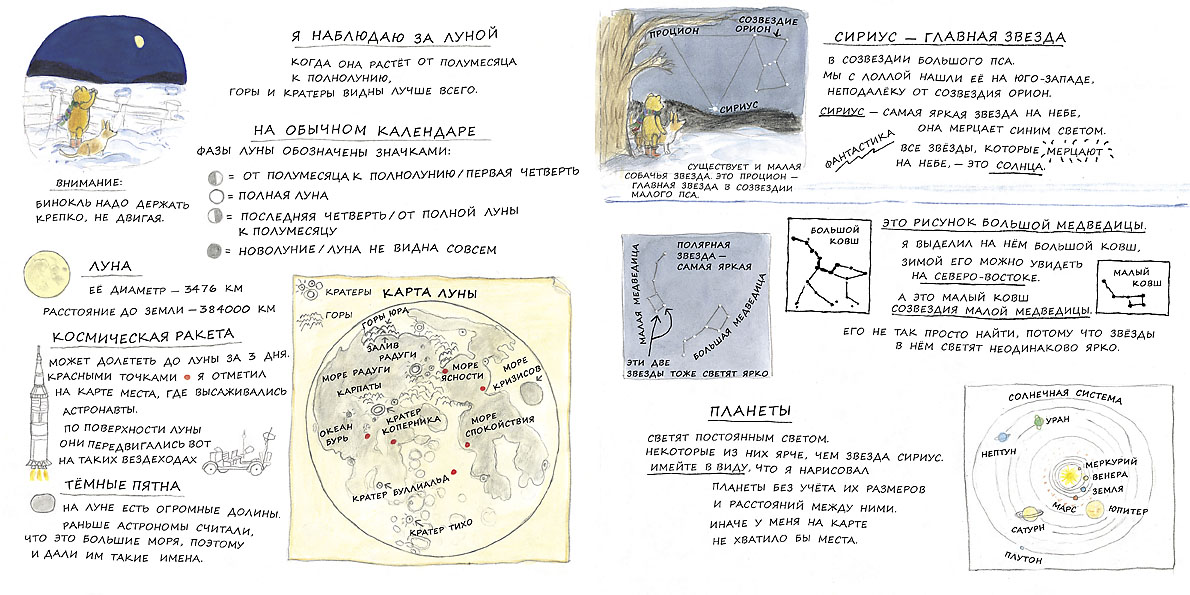 Я НАБЛЮДАЮ ЗА ЛУНОЙ
КОГДА ОНА РАСТЁТ ОТ ПОЛУМЕСЯЦА
К ПОЛНОЛУНИЮ,
ГОРЫ И КРАТЕРЫ ВИДНЫ ЛУЧШЕ ВСЕГО.
НА ОБЫЧНОМ КАЛЕНДАРЕ
ФАЗЫ ЛУНЫ ОБОЗНАЧЕНЫ ЗНАЧКАМИ:
= ОТ ПОЛУМЕСЯЦА К ПОЛНОЛУНИЮ/ПЕРВАЯ ЧЕТВЕРТЬ
= ПОЛНАЯ ЛУНА
= ПОСЛЕДНЯЯ ЧЕТВЕРТЬ/ОТ ПОЛНОЙ ЛУНЫ
К ПОЛУМЕСЯЦУ
= НОВОЛУНИЕ/ЛУНА НЕ ВИДНА СОВСЕМ
ВНИМАНИЕ:
БИНОКЛЬ НАДО ДЕРЖАТЬ
КРЕПКО, НЕ ДВИГАЯ.
ЛУНА
ЕЁ ДИАМЕТР – 3476 КМ
РАССТОЯНИЕ ДО ЗЕМЛИ – 384000 КМ
КОСМИЧЕСКАЯ РАКЕТА
МОЖЕТ ДОЛЕТЕТЬ ДО ЛУНЫ ЗА 3 ДНЯ.
КРАСНЫМИ ТОЧКАМИ • Я ОТМЕТИЛ
НА КАРТЕ МЕСТА, ГДЕ ВЫСАЖИВАЛИСЬ
АСТРОНАВТЫ.
ПО ПОВЕРХНОСТИ ЛУНЫ
ОНИ ПЕРЕДВИГАЛИСЬ ВОТ
НА ТАКИХ ВЕЗДЕХОДАХ
ТЁМНЫЕ ПЯТНА
НА ЛУНЕ ЕСТЬ ОГРОМНЫЕ ДОЛИНЫ.
РАНЬШЕ АСТРОНОМЫ СЧИТАЛИ,
ЧТО ЭТО БОЛЬШИЕ МОРЯ, ПОЭТОМУ
И ДАЛИ ИМ ТАКИЕ ИМЕНА.
КРАТЕРЫ
КАРТА ЛУНЫ
ГОРЫ
ГОРЫ ЮРА
ЗАЛИВ
РАДУГИ
МОРЕ РАДУГИ
МОРЕ
ЯСНОСТИ
МОРЕ
КРИЗИСОВ
КАРПАТЫ
КРАТЕР
КОПЕРНИКА
ОКЕАН
БУРЬ
МОРЕ
СПОКОЙСТВИЯ
КРАТЕР БУЛЛИАЛЬД
КРАТЕР ТИХО
ПРОЦИОН
СОЗВЕЗДИЕ
ОРИОН
СИРИУС
СУЩЕСТВУЕТ И МАЛАЯ
СОБАЧЬЯ ЗВЕЗДА. ЭТО ПРОЦИОН –
ГЛАВНАЯ ЗВЕЗДА В СОЗВЕЗДИИ
МАЛОГО ПСА.
СИРИУС – ГЛАВНАЯ ЗВЕЗДА
В СОЗВЕЗДИИ БОЛЬШОГО ПСА.
МЫ С ЛОЛЛОЙ НАШЛИ ЕЁ НА ЮГО-ЗАПАДЕ,
НЕПОДАЛЁКУ ОТ СОЗВЕЗДИЯ ОРИОН.
СИРИУС – САМАЯ ЯРКАЯ ЗВЕЗДА НА НЕБЕ,
ОНА МЕРЦАЕТ СИНИМ СВЕТОМ.
ФАНТАСТИКА
ВСЕ ЗВЁЗДЫ, КОТОРЫЕ МЕРЦАЮТ
НА НЕБЕ, – ЭТО СОЛНЦА.
МАЛАЯ МЕДВЕДИЦА
ПОЛЯРНАЯ
ЗВЕЗДА –
САМАЯ ЯРКАЯ
БОЛЬШАЯ МЕДВЕДИЦА
ЭТИ ДВЕ
ЗВЕЗДЫ ТОЖЕ СВЕТЯТ ЯРКО
БОЛЬШОЙ
КОВШ
ЭТО РИСУНОК БОЛЬШОЙ МЕДВЕДИЦЫ.
Я ВЫДЕЛИЛ НА НЁМ БОЛЬШОЙ КОВШ,
ЗИМОЙ ЕГО МОЖНО УВИДЕТЬ
НА СЕВЕРО-ВОСТОКЕ.
А ЭТО МАЛЫЙ КОВШ
СОЗВЕЗДИЯ МАЛОЙ МЕДВЕДИЦЫ.
МАЛЫЙ
КОВШ
ЕГО НЕ ТАК ПРОСТО НАЙТИ, ПОТОМУ ЧТО ЗВЁЗДЫ
В НЁМ СВЕТЯТ НЕОДИНАКОВО ЯРКО.
ПЛАНЕТЫ
СВЕТЯТ ПОСТОЯННЫМ СВЕТОМ.
НЕКОТОРЫЕ ИЗ НИХ ЯРЧЕ, ЧЕМ ЗВЕЗДА СИРИУС.
ИМЕЙТЕ В ВИДУ, ЧТО Я НАРИСОВАЛ
ПЛАНЕТЫ БЕЗ УЧЁТА ИХ РАЗМЕРОВ
И РАССТОЯНИЙ МЕЖДУ НИМИ.
ИНАЧЕ У МЕНЯ НА КАРТЕ
НЕ ХВАТИЛО БЫ МЕСТА.
СОЛНЕЧНАЯ СИСТЕМА
УРАН
НЕПТУН
МЕРКУРИЙ
ВЕНЕРА
ЗЕМЛЯ
МАРС
ЮПИТЕР
САТУРН
ПЛУТОН